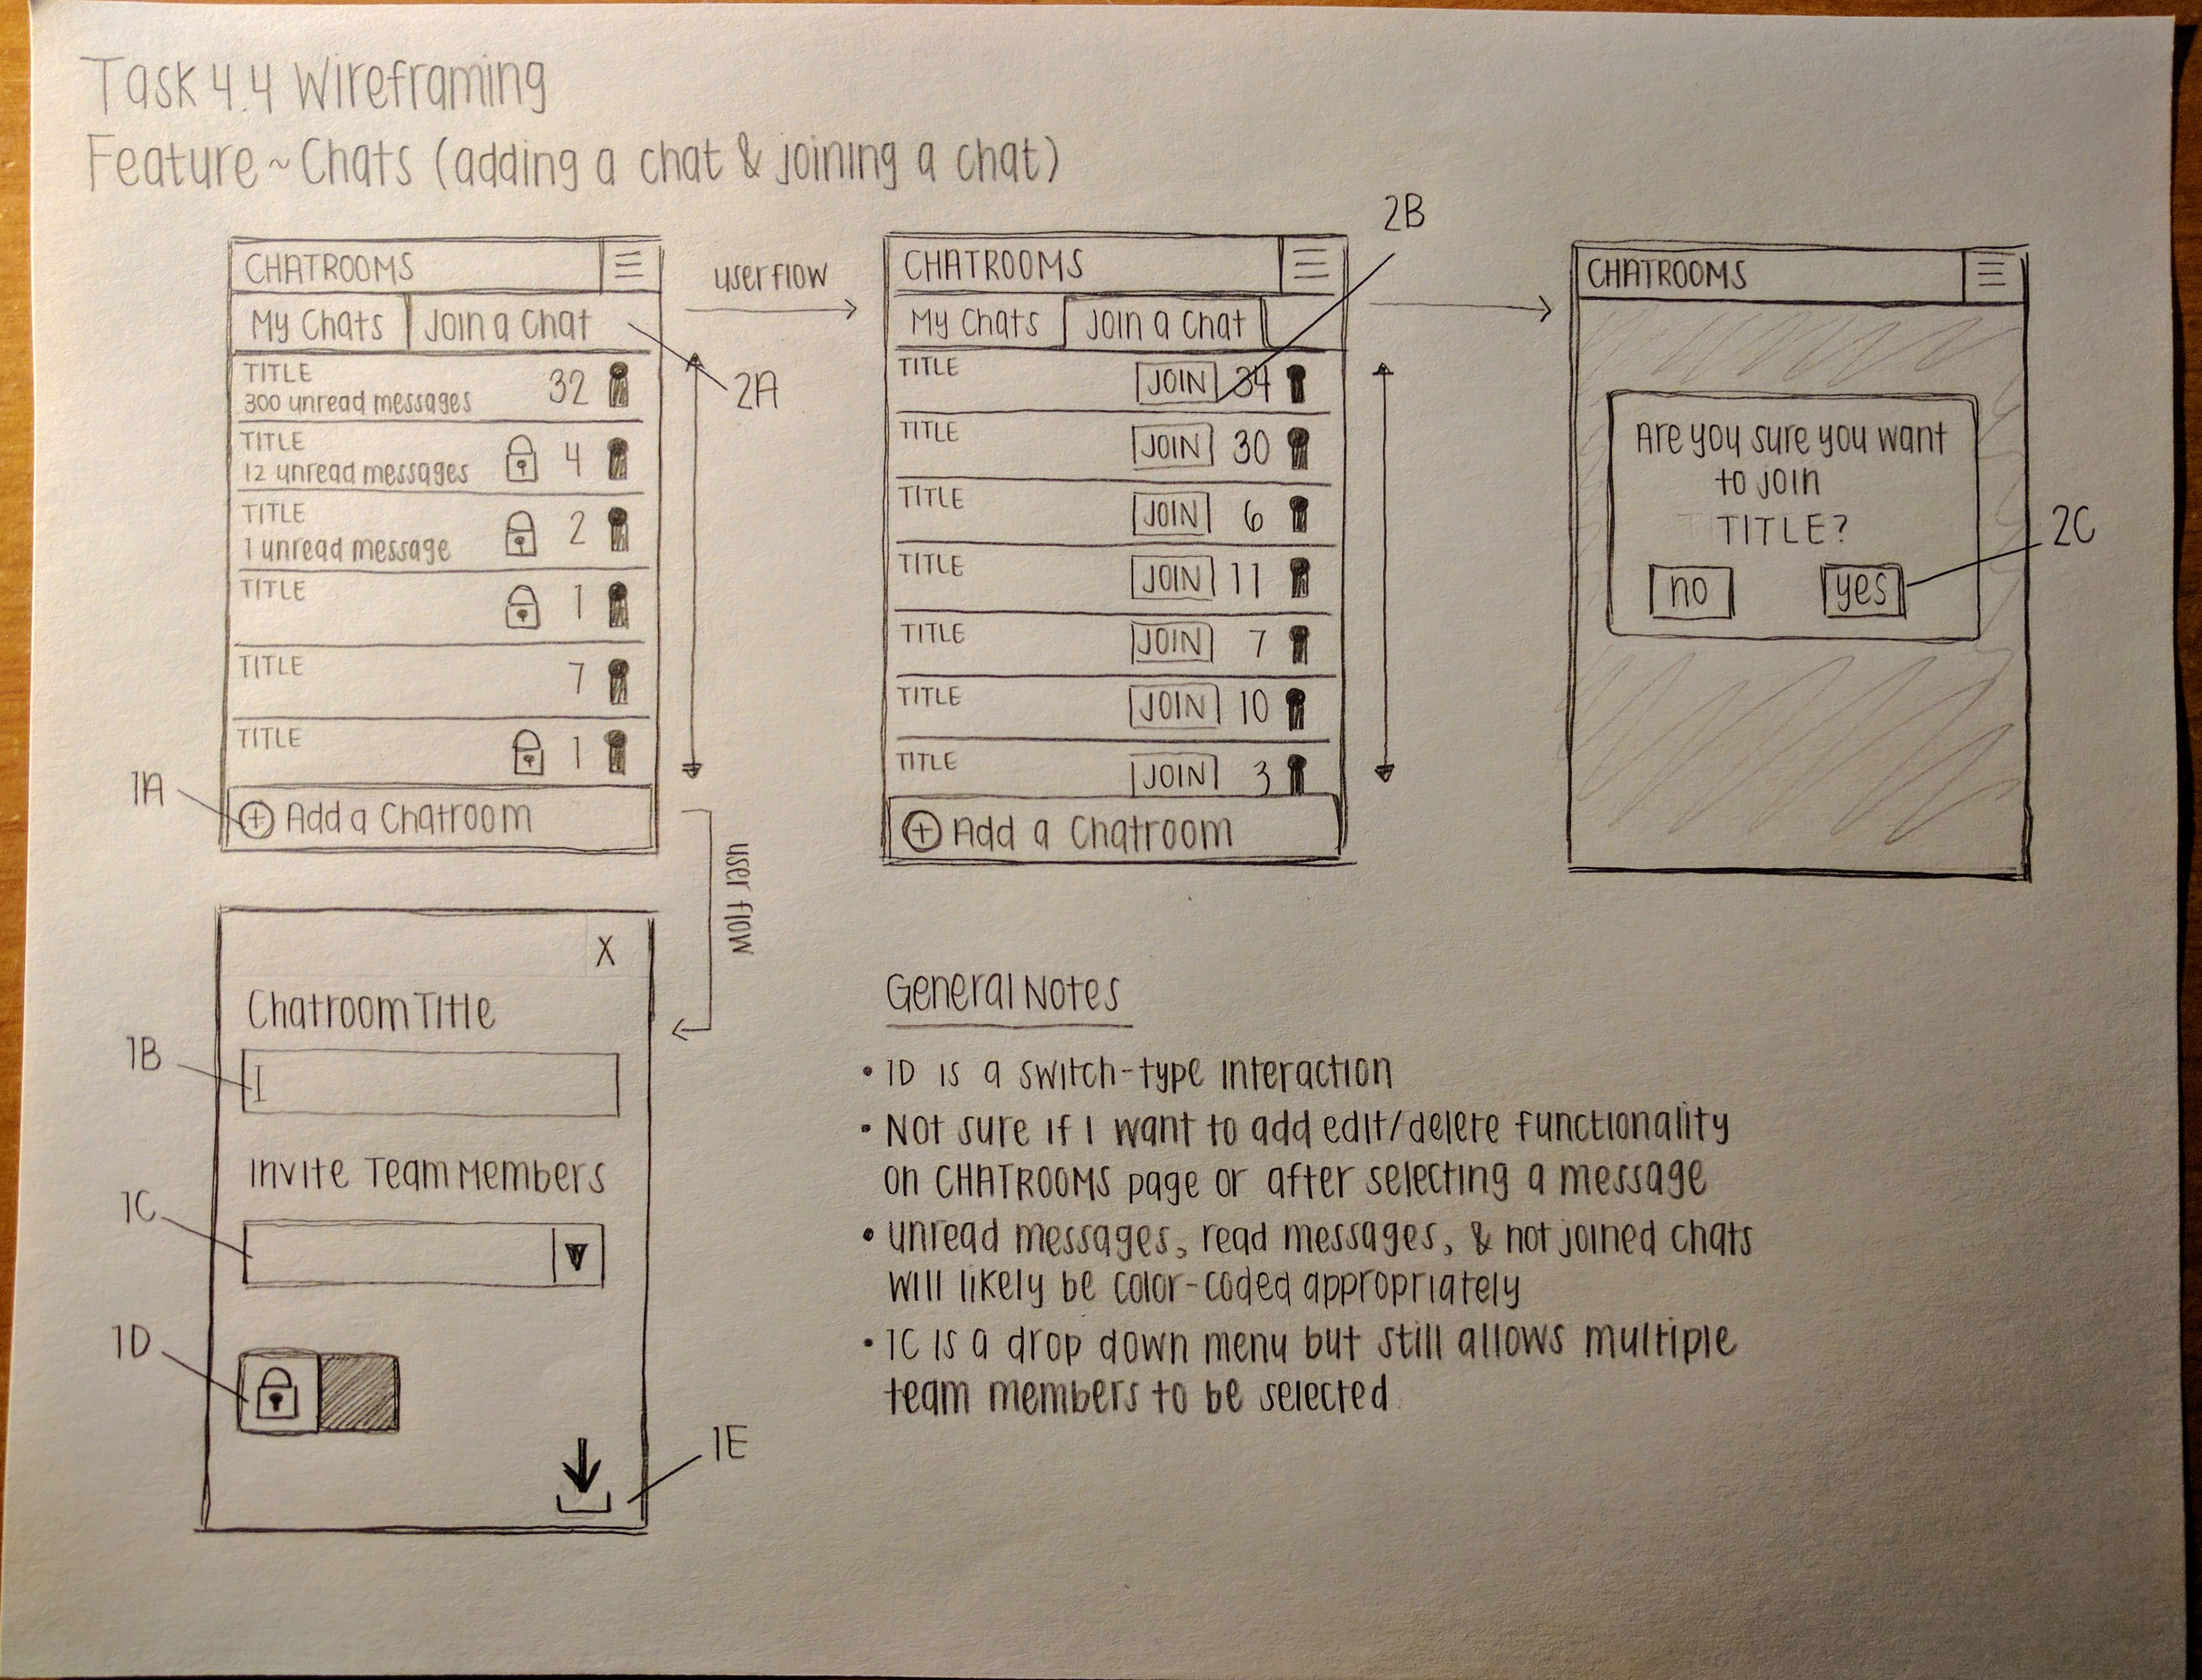 Task 4.4 Wireframing
Feature ~ Chats (adding a chat & joining a chat)
CHATROOMS
My Chats Join a Chat
TITLE
300 unread messages 32
TITLE
12 unread messages 4
TITLE
1 unread message 2
TITLE
1
TITLE
7
TITLE
1
+ Add a Chatroom
1A
2A
user flow
user flow
CHATROOMS
My Chats Join a Chat
TITLE JOIN 34
TITLE JOIN 30
TITLE JOIN 6
TITLE JOIN 11
TITLE JOIN 7
TITLE JOIN 10
TITLE JOIN 3
+ Add a Chatroom
2B
CHATROOMS
Are you sure you want
to join
TITLE?
no yes
2C
X
Chatroom Title
1B
Invite Team Members
1C
1D
1E
General Notes
• 1D is a switch-type interaction
• Not sure if I want to add edit/delete functionality
on CHATROOMS page or after selecting a message
• unread messages, read messages, & not joined chats
will likely be color-coded appropriately
• 1C is a drop down menu but still allows multiple
team members to be selected.